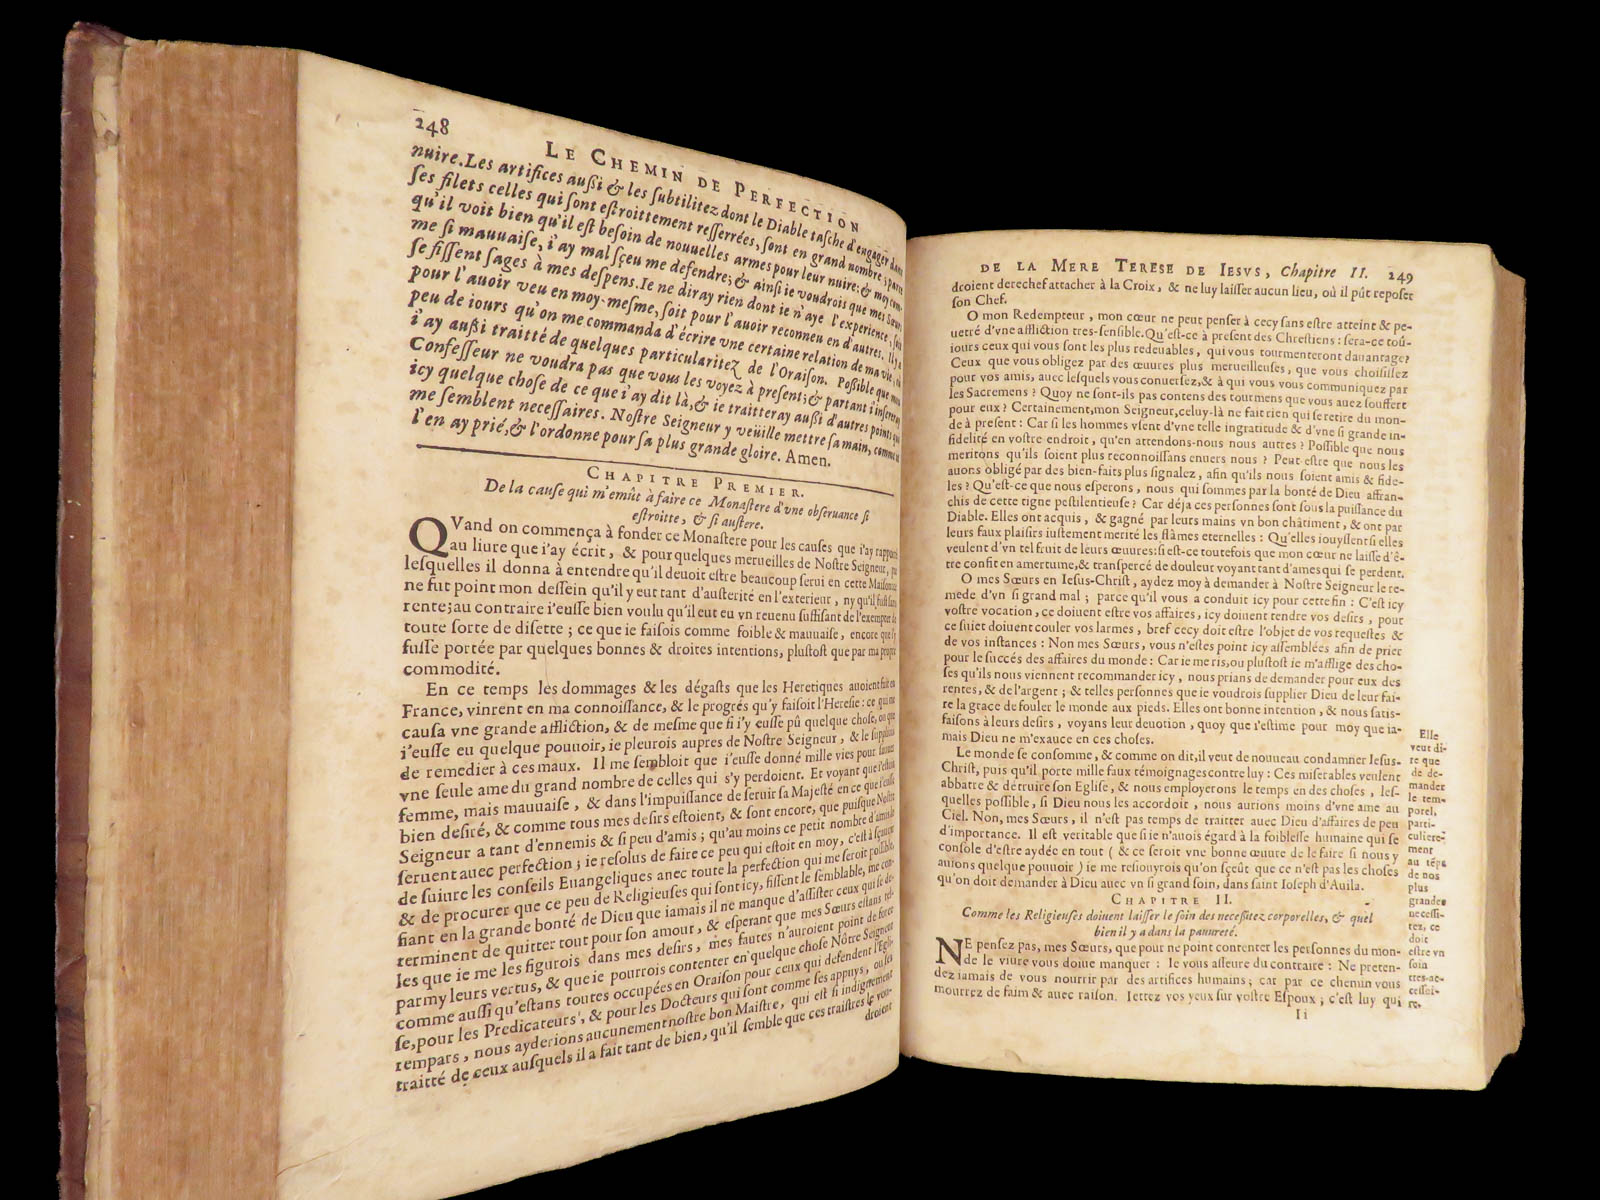 248
LE CHEMIN DE PERFECTION
nuire. Les artifices aussi & les subtilitez dont le Diable tasche d'engager dans
ses filets celles qui sont estroittement resserrées, sont en grand nombre; parce
qu'il voit bien qu'il est besoin de nouuelles armes pour leur nuire: & moy com-
me si mauuaise, i'ay mal sçeu me defendre; & ainsi ie voudrois que mes Sœurs
se fissent sages à mes despens. Ie ne diray rien dont ie n'aye l'experience, soit
pour l'auoir veu en moy-mesme, soit pour l'auoir reconneu en d'autres. Il y a
peu de iours qu'on me commanda d'écrire vne certaine relation de ma vie, où
i'ay aussi traitté de quelques particularitez de l'Oraison. Possible que mon
Confesseur ne voudra pas que vous les voyez à present; & partant i'insereray
icy quelque chose de ce que i'ay dit là, & ie traitteray aussi d'autres points qui
me semblent necessaires. Nostre Seigneur y veüille mettre sa main, comme ie
l'en ay prié, & l'ordonne pour sa plus grande gloire. Amen.
CHAPITRE PREMIER.
De la cause qui m'emût à faire ce Monastere d'vne obseruance si
estroitte, & si austere.
QVand on commença à fonder ce Monastere pour les causes que i'ay rapporté
au liure que i'ay écrit, & pour quelques merueilles de Nostre Seigneur, par
lesquelles il donna à entendre qu'il deuoit estre beaucoup serui en cette Maison: ce
ne fut point mon dessein qu'il y eut tant d'austerité en l'exterieur, ny qu'il fust sans
rente; au contraire i'eusse bien voulu qu'il eut eu vn reuenu suffisant de l'exempter de
toute sorte de disette; ce que ie faisois comme foible & mauuaise, encore que i'y
fusse portée par quelques bonnes & droites intentions, plustost que par ma propre
commodité.
En ce temps les dommages & les dégasts que les Heretiques auoient fait en
France, vinrent en ma connoissance, & le progrés qu'y faisoit l'Heresie: ce qui me
causa vne grande affliction, & de mesme que si i'y eusse pû quelque chose, ou que
i'eusse eu quelque pouuoir, ie pleurois aupres de Nostre Seigneur, & le suppliois
de remedier à ces maux. Il me sembloit que i'eusse donné mille vies pour sauuer
vne seule ame du grand nombre de celles qui s'y perdoient. Et voyant que i'estois
femme, mais mauuaise, & dans l'impuissance de seruir sa Majesté en ce que i'eusse
bien desiré, & comme tous mes desirs estoient, & sont encore, que puisque Nostre
Seigneur a tant d'ennemis & si peu d'amis; qu'au moins ce petit nombre d'amis le
seruent auec perfection; ie resolus de faire ce peu qui estoit en moy, c'est à sçauoir
de suiure les conseils Euangeliques auec toute la perfection qui me seroit possible,
& de procurer que ce peu de Religieuses qui sont icy, fissent le semblable, me con-
fiant en la grande bonté de Dieu que iamais il ne manque d'assister ceux qui se de-
terminent de quitter tout pour son amour, & esperant que mes Sœurs estans tel-
les que ie me les figurois dans mes desirs, mes fautes n'auroient point de force
parmy leurs vertus, & que ie pourrois contenter en quelque chose Nôtre Seigneur
comme aussi qu'estans toutes occupées en Oraison pour ceux qui defendent l'Egli-
se, pour les Predicateurs, & pour les Docteurs qui sont comme ses appuys, ou ses
rempars, nous ayderions aucunement nostre bon Maistre, qui est si indignement
traitté de ceux ausquels il a fait tant de bien, qu'il semble que ces traistres le vou-
droient
DE LA MERE TERESE DE IESVS, Chapitre II. 249
droient derechef attacher à la Croix, & ne luy laisser aucun lieu, où il pût reposer
son Chef.
O mon Redempteur, mon cœur ne peut penser à cecy sans estre atteint & pe-
netré d'vne affliction tres-sensible. Qu'est-ce à present des Chrestiens: sera-ce toû-
iours ceux qui vous sont les plus redeuables, qui vous tourmenteront dauantage?
Ceux que vous obligez par des œuures plus merueilleuses, que vous choisissez
pour vos amis, auec lesquels vous conuersez, & à qui vous vous communiquez par
les Sacremens? Quoy ne sont-ils pas contens des tourmens que vous auez souffert
pour eux? Certainement, mon Seigneur, celuy-là ne fait rien qui se retire du mon-
de à present: Car si les hommes vsent d'vne telle ingratitude & d'vne si grande in-
fidelité en vostre endroit, qu'en attendons-nous nous autres? Possible que nous
meritons qu'ils soient plus reconnoissans enuers nous? Peut estre que nous les
auons obligé par des bien-faits plus signalez, afin qu'ils nous soient amis & fide-
les? Qu'est-ce que nous esperons, nous qui sommes par la bonté de Dieu affran-
chis de cette tigne pestilentieuse? Car déja ces personnes sont sous la puissance du
Diable. Elles ont acquis, & gagné par leurs mains vn bon châtiment, & ont par
leurs faux plaisirs iustement merité les flâmes eternelles: Qu'elles iouyssent si elles
veulent d'vn tel fruit de leurs œuures: si est-ce toutefois que mon cœur ne laisse d'ê-
tre confit en amertume, & transpercé de douleur voyant tant d'ames qui se perdent.
O mes Sœurs en Iesus-Christ, aydez moy à demander à Nostre Seigneur le re-
mede d'vn si grand mal; parce qu'il vous a conduit icy pour cette fin: C'est icy
vostre vocation, ce doiuent estre vos affaires, icy doiuent tendre vos desirs, pour
ce sujet doiuent couler vos larmes, bref cecy doit estre l'objet de vos requestes &
de vos instances: Non mes Sœurs, vous n'estes point icy assemblées afin de prier
pour le succés des affaires du monde: Car ie me ris, ou plustost ie m'afflige des cho-
ses qu'ils nous viennent recommander icy, nous prians de demander pour eux des
rentes, & de l'argent; & telles personnes que ie voudrois supplier Dieu de leur fai-
re la grace de fouler le monde aux pieds. Elles ont bonne intention, & nous satis-
faisons à leurs desirs, voyans leur deuotion, quoy que i'estime pour moy que ia-
mais Dieu ne m'exauce en ces choses.
Le monde se consomme, & comme on dit, il veut de nouueau condamner Iesus-
Christ, puis qu'il porte mille faux témoignages contre luy: Ces miserables veulent
abbatre & détruire son Eglise, & nous employerons le temps en des choses, les-
quelles possible, si Dieu nous les accordoit, nous aurions moins d'vne ame au
Ciel. Non, mes Sœurs, il n'est pas temps de traitter auec Dieu d'affaires de peu
d'importance. Il est veritable que si ie n'auois égard à la foiblesse humaine qui se
console d'estre aydée en tout (& ce seroit vne bonne œuure de le faire si nous y
auions quelque pouuoir) ie me resiouyrois qu'on sçeût que ce n'est pas les choses
qu'on doit demander à Dieu auec vn si grand soin, dans saint Ioseph d'Auila.
Elle
veut di-
re que
de de-
mander
le tem-
porel,
parti-
culiere-
ment
au tēps
de nos
plus
grandes
necessi-
tez, ce
doit
estre vn
soin
tres-ac-
cessoi-
re.
CHAPITRE II.
Comme les Religieuses doiuent laisser le soin des necessitez corporelles, & quel
bien il y a dans la pauureté.
NE pensez pas, mes Sœurs, que pour ne point contenter les personnes du mon-
de le viure vous doiue manquer: Ie vous asseure du contraire: Ne preten-
dez iamais de vous nourrir par des artifices humains; car par ce chemin vous
mourrez de faim & auec raison. Iettez vos yeux sur vostre Espoux; c'est luy qui
Ii